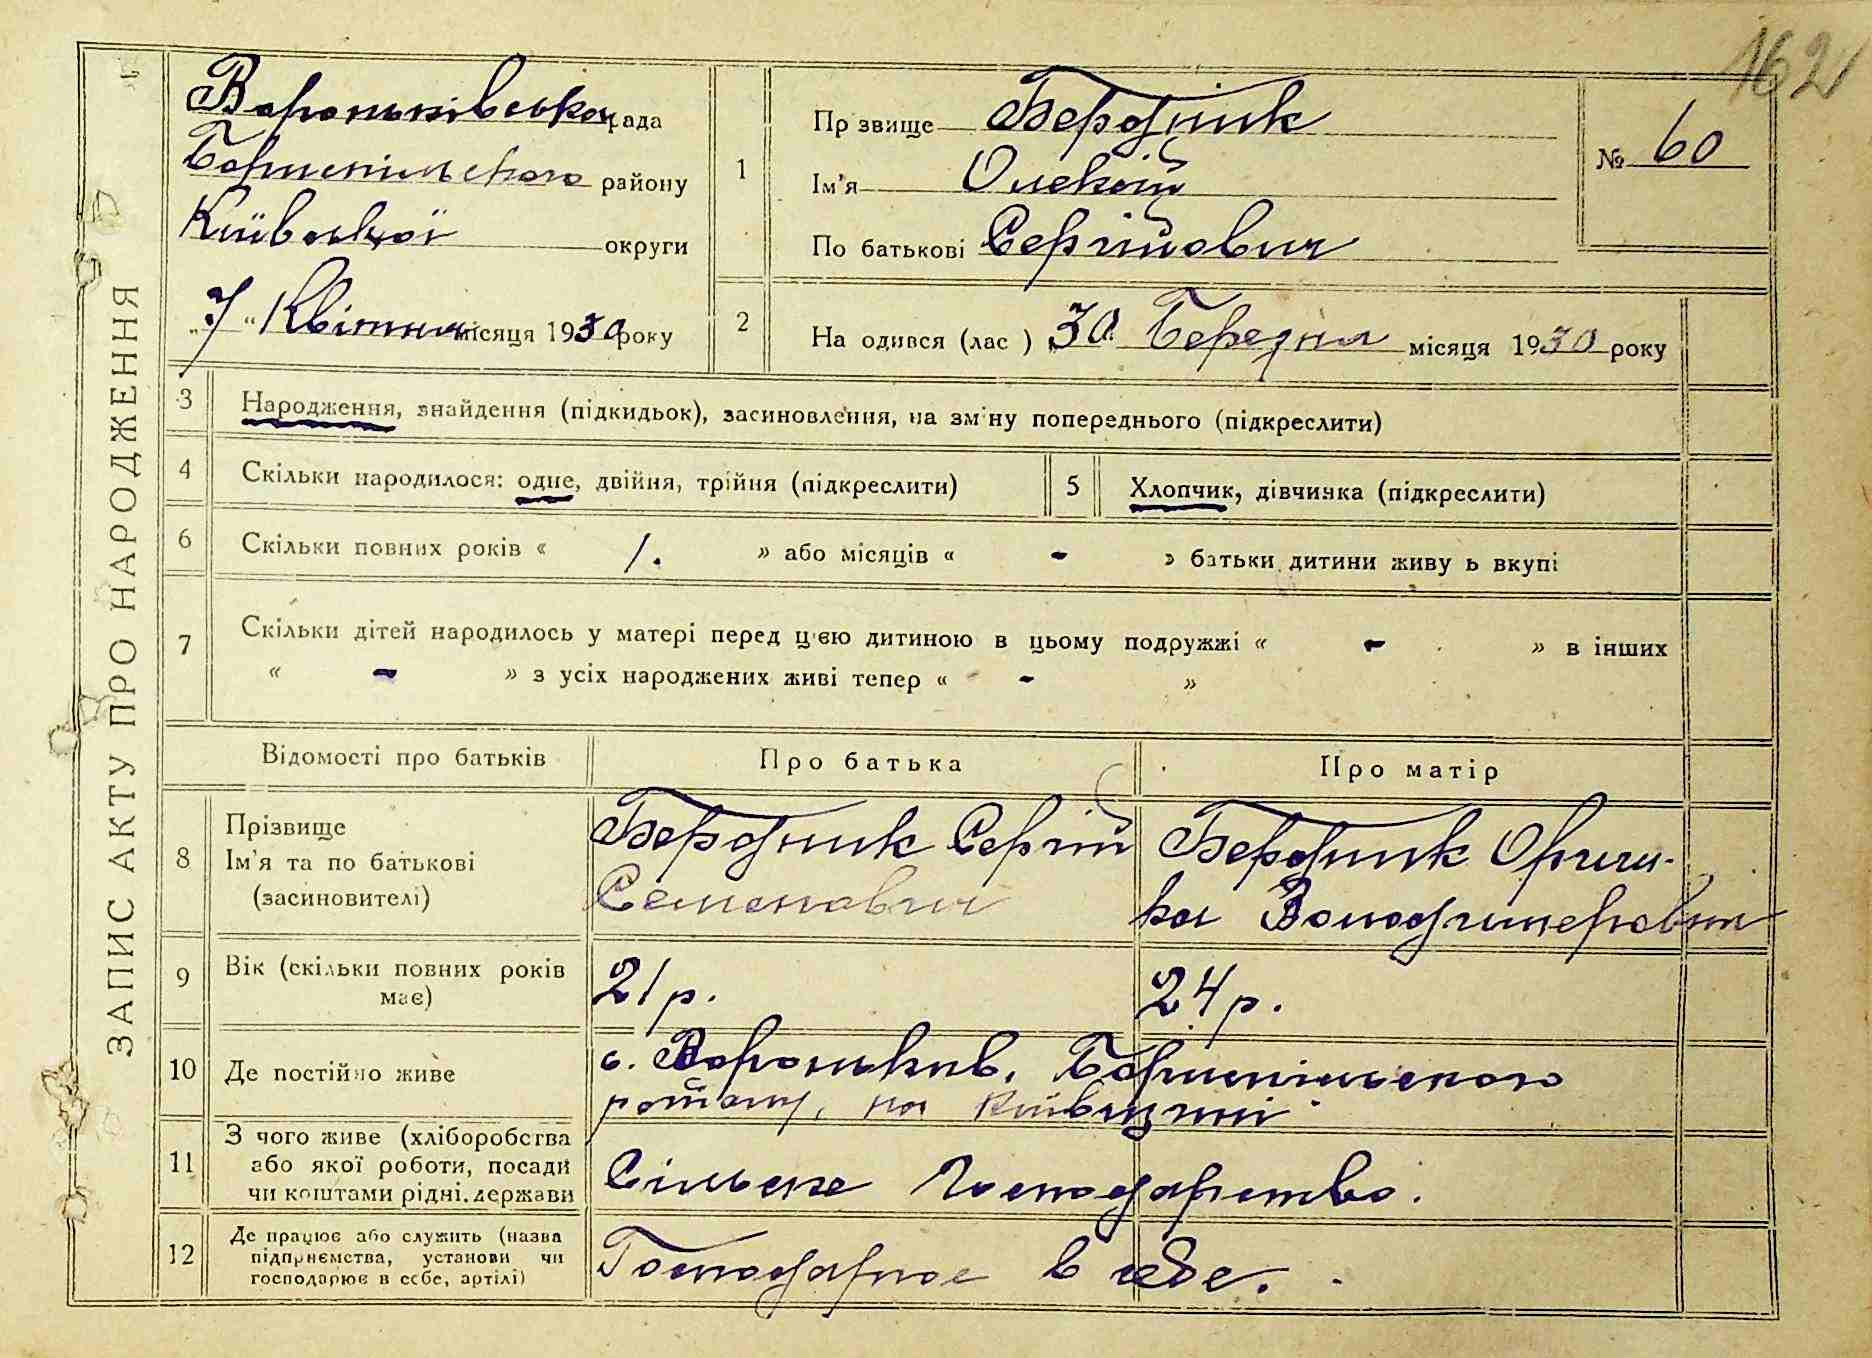 162
ЗАПИС АКТУ ПРО НАРОДЖЕННЯ
Вороньківська рада
Бориспільського району
Київської округи
„7“ Квітня місяця 1930 року
1
Прізвище Бердник
Ім'я Олексій
По батькові Сергійович
№ 60
2
На одився (лас ) 30 Березня місяця 1930 року
3 Народження, знайдення (підкидьок), засиновлення, на зміну попереднього (підкреслити)
4 Скільки народилося: одне, двійня, трійня (підкреслити) 5 Хлопчик, дівчинка (підкреслити)
6 Скільки повних років « 1. » або місяців « - » батьки дитини живу ь вкупі
7 Скільки дітей народилось у матері перед цією дитиною в цьому подружжі « - » в інших
« - » з усіх народжених живі тепер « - »
Відомості про батьків Про батька Про матір
8 Прізвище
Ім'я та по батькові
(засиновителі)
Бердник Сергій
Семенович
Бердник Оришка
Володимеровна
9 Вік (скільки повних років
має)
21 р. 24 р.
10 Де постійно живе
с. Вороньків, Бориспільского
району, на Київщині
11 З чого живе (хліборобства
або якої роботи, посади
чи коштами рідні. держави
Сільске Господарство.
12 Де працює або служить (назва
підприємства, установи чи
господарює в себе, артілі)
Господарює в себе.